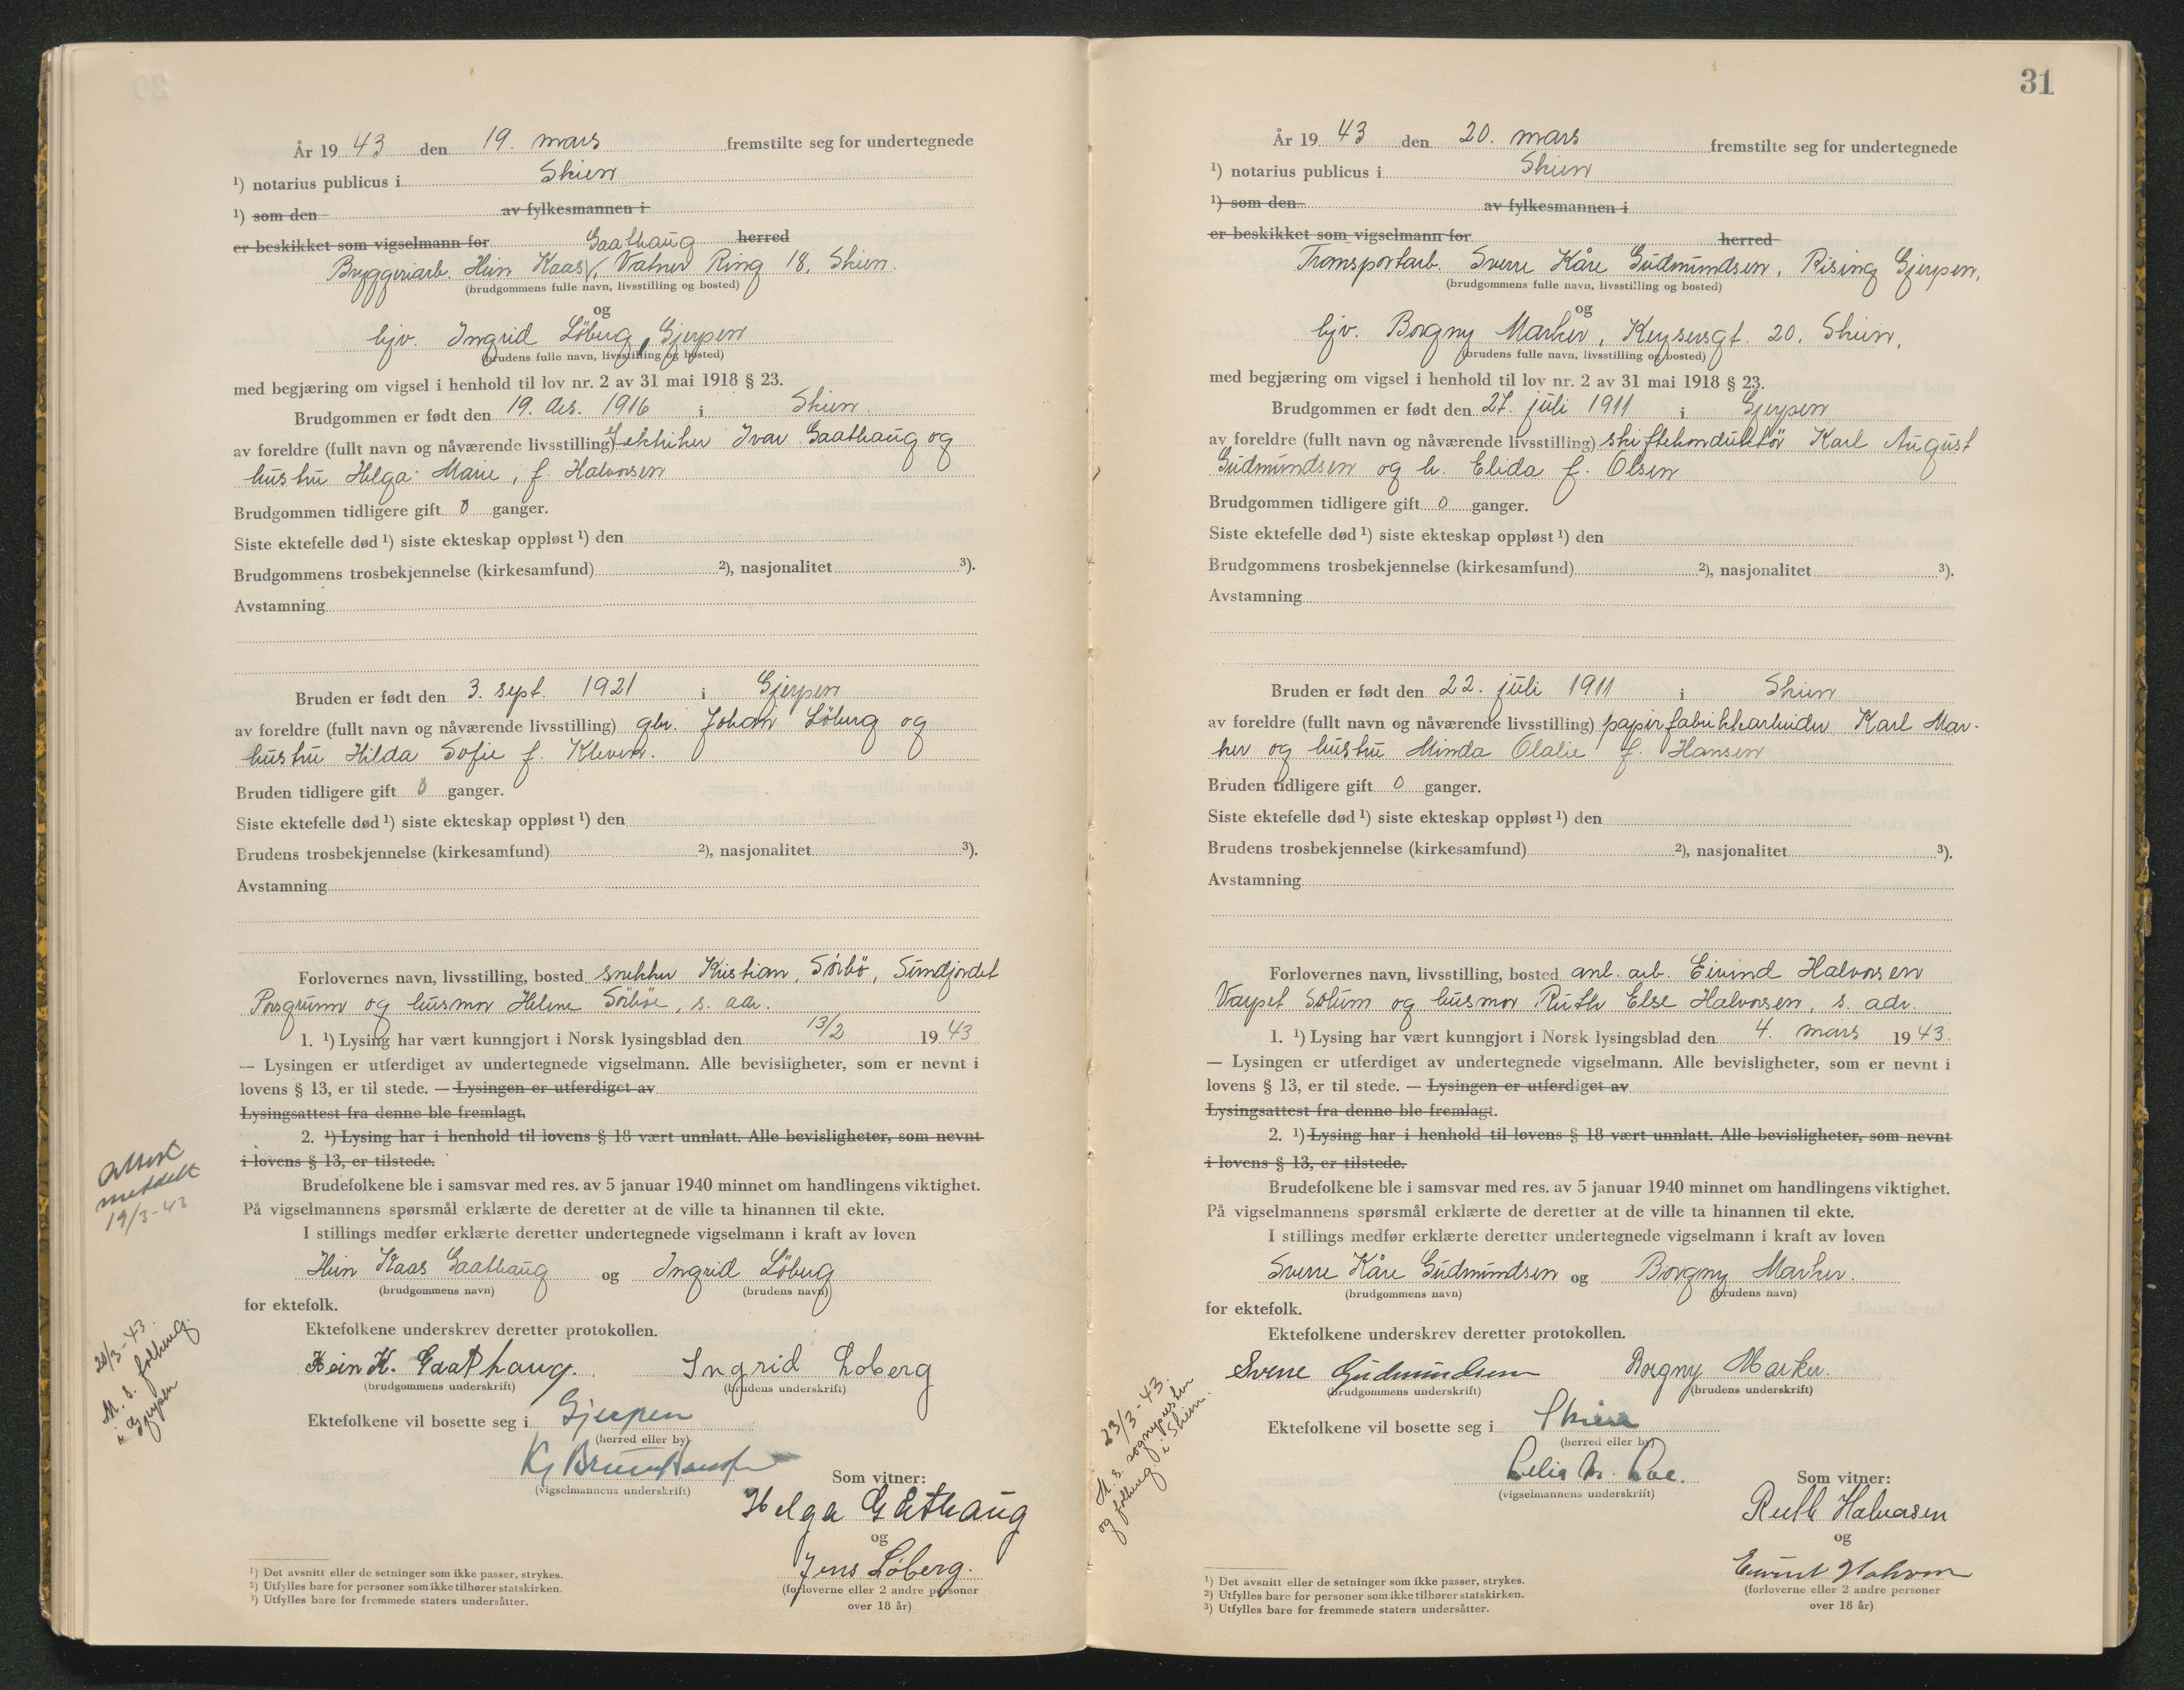 År 19 43 den 19. mars fremstilte seg for undertegnede
¹) notarius publicus i Skien
¹) som den av fylkesmannen i
er beskikket som vigselmann for herred
Gaathaug
Bryggeriarb. Hein Kaas √, Vatner Ring 18, Skien.
(brudgommens fulle navn, livsstilling og bosted)
og
hjv. Ingrid Löberg, Gjerpen
(brudens fulle navn, livsstilling og bosted)
med begjæring om vigsel i henhold til lov nr. 2 av 31 mai 1918 § 23.
Brudgommen er født den 19. des. 1916 i Skien.
av foreldre (fullt navn og nåværende livsstilling) elektriker Ivar Gaathaug og
hustru Helga Marie, f. Halvorsen
Brudgommen tidligere gift 0 ganger.
Siste ektefelle død ¹) siste ekteskap oppløst ¹) den
Brudgommens trosbekjennelse (kirkesamfund) ²), nasjonalitet ³).
Avstamning
Bruden er født den 3. sept. 1921 i Gjerpen
av foreldre (fullt navn og nåværende livsstilling) gbr. Johan Löberg og
hustru Hilda Sofie f. Kleven.
Bruden tidligere gift 0 ganger.
Siste ektefelle død ¹) siste ekteskap oppløst ¹) den
Brudens trosbekjennelse (kirkesamfund) ²), nasjonalitet ³).
Avstamning
Forlovernes navn, livsstilling, bosted snekker Kristian Sörbö, Sundjordet
Porsgrunn og husmor Helene Sörböe, s. adr.
1. ¹) Lysing har vært kunngjort i Norsk lysingsblad den 13/2 19 43
— Lysingen er utferdiget av undertegnede vigselmann. Alle bevisligheter, som er nevnt i
lovens § 13, er til stede. — Lysingen er utferdiget av
Lysingsattest fra denne ble fremlagt.
2. ¹) Lysing har i henhold til lovens § 18 vært unnlatt. Alle bevisligheter, som nevnt
i lovens § 13, er tilstede.
Brudefolkene ble i samsvar med res. av 5 januar 1940 minnet om handlingens viktighet.
På vigselmannens spørsmål erklærte de deretter at de ville ta hinannen til ekte.
I stillings medfør erklærte deretter undertegnede vigselmann i kraft av loven
Hein Kaas Gaathaug og Ingrid Löberg
(brudgommens navn) (brudens navn)
for ektefolk.
Ektefolkene underskrev deretter protokollen.
Hein K. Gaathaug. Ingrid Loberg
(brudgommens underskrift) (brudens underskrift)
Ektefolkene vil bosette seg i Gjerpen
(herred eller by)
(vigselmannens underskrift)
Som vitner:
Helga Gåthaug
og
Jens Løberg.
(forloverne eller 2 andre personer
over 18 år)
¹) Det avsnitt eller de setninger som ikke passer, strykes.
²) Utfylles bare for personer som ikke tilhører statskirken.
³) Utfylles bare for fremmede staters undersåtter.
attest
meddelt
19/3-43
20/3-43.
M. s. folkeug.
i Gjerpen
31
År 19 43 den 20. mars fremstilte seg for undertegnede
¹) notarius publicus i Skien
¹) som den av fylkesmannen i
er beskikket som vigselmann for herred
Transportarb. Sverre Kåre Gudmundsen, Rising Gjerpen,
(brudgommens fulle navn, livsstilling og bosted)
og
hjv. Borgny Marker, Keysersgt. 20, Skien,
(brudens fulle navn, livsstilling og bosted)
med begjæring om vigsel i henhold til lov nr. 2 av 31 mai 1918 § 23.
Brudgommen er født den 27. juli 1911 i Gjerpen
av foreldre (fullt navn og nåværende livsstilling) skiftekonduktör Karl August
Gudmundsen og h. Elida f. Olsen
Brudgommen tidligere gift 0 ganger.
Siste ektefelle død ¹) siste ekteskap oppløst ¹) den
Brudgommens trosbekjennelse (kirkesamfund) ²), nasjonalitet ³).
Avstamning
Bruden er født den 22. juli 1911 i Skien
av foreldre (fullt navn og nåværende livsstilling) papirfabrikkarbeider Karl Mar-
ker og hustru Minda Olalie f. Hansen
Bruden tidligere gift 0 ganger.
Siste ektefelle død ¹) siste ekteskap oppløst ¹) den
Brudens trosbekjennelse (kirkesamfund) ²), nasjonalitet ³).
Avstamning
Forlovernes navn, livsstilling, bosted anl. arb. Eivind Halvorsen
Varpet Solum og husmor Ruth Else Halvorsen, s. adr.
1. ¹) Lysing har vært kunngjort i Norsk lysingsblad den 4. mars 19 43.
— Lysingen er utferdiget av undertegnede vigselmann. Alle bevisligheter, som er nevnt i
lovens § 13, er til stede. — Lysingen er utferdiget av
Lysingsattest fra denne ble fremlagt.
2. ¹) Lysing har i henhold til lovens § 18 vært unnlatt. Alle bevisligheter, som nevnt
i lovens § 13, er tilstede.
Brudefolkene ble i samsvar med res. av 5 januar 1940 minnet om handlingens viktighet.
På vigselmannens spørsmål erklærte de deretter at de ville ta hinannen til ekte.
I stillings medfør erklærte deretter undertegnede vigselmann i kraft av loven
Sverre Kåre Gudmundsen og Borgny Marker.
(brudgommens navn) (brudens navn)
for ektefolk.
Ektefolkene underskrev deretter protokollen.
Sverre Gudmundsen Borgny Marker.
(brudgommens underskrift) (brudens underskrift)
Ektefolkene vil bosette seg i Skien
(herred eller by)
(vigselmannens underskrift)
Som vitner:
Ruth Halvorsen
og
(forloverne eller 2 andre personer
over 18 år)
¹) Det avsnitt eller de setninger som ikke passer, strykes.
²) Utfylles bare for personer som ikke tilhører statskirken.
³) Utfylles bare for fremmede staters undersåtter.
23/3-43.
M. s. sognepresten
og folkeug. i Skien.